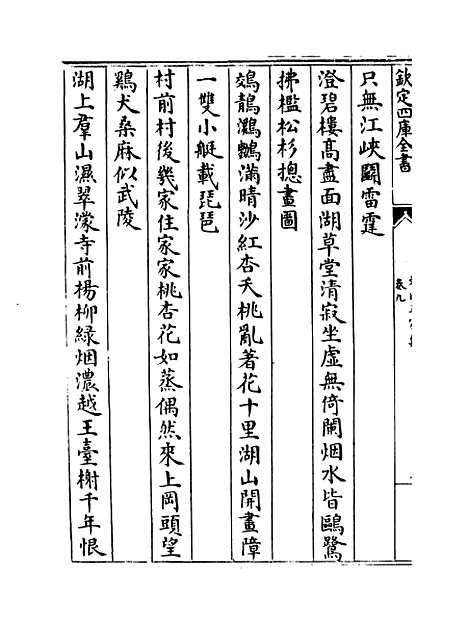 欽定四庫全書
卷九
只無江峽鬬雷霆
澄碧樓髙盡面湖草堂清寂坐虛無倚闌烟水皆鷗鷺
拂檻松杉摠畫圖
鵁鶄鸂鶒滿晴沙紅杏夭桃亂著花十里湖山開畫障
一雙小艇載琵琶
村前村後幾家住家家桃杏花如蒸偶然來上岡頭望
鷄犬桑麻似武陵
湖上羣山濕翠濛寺前楊柳緑烟濃越王臺榭千年恨